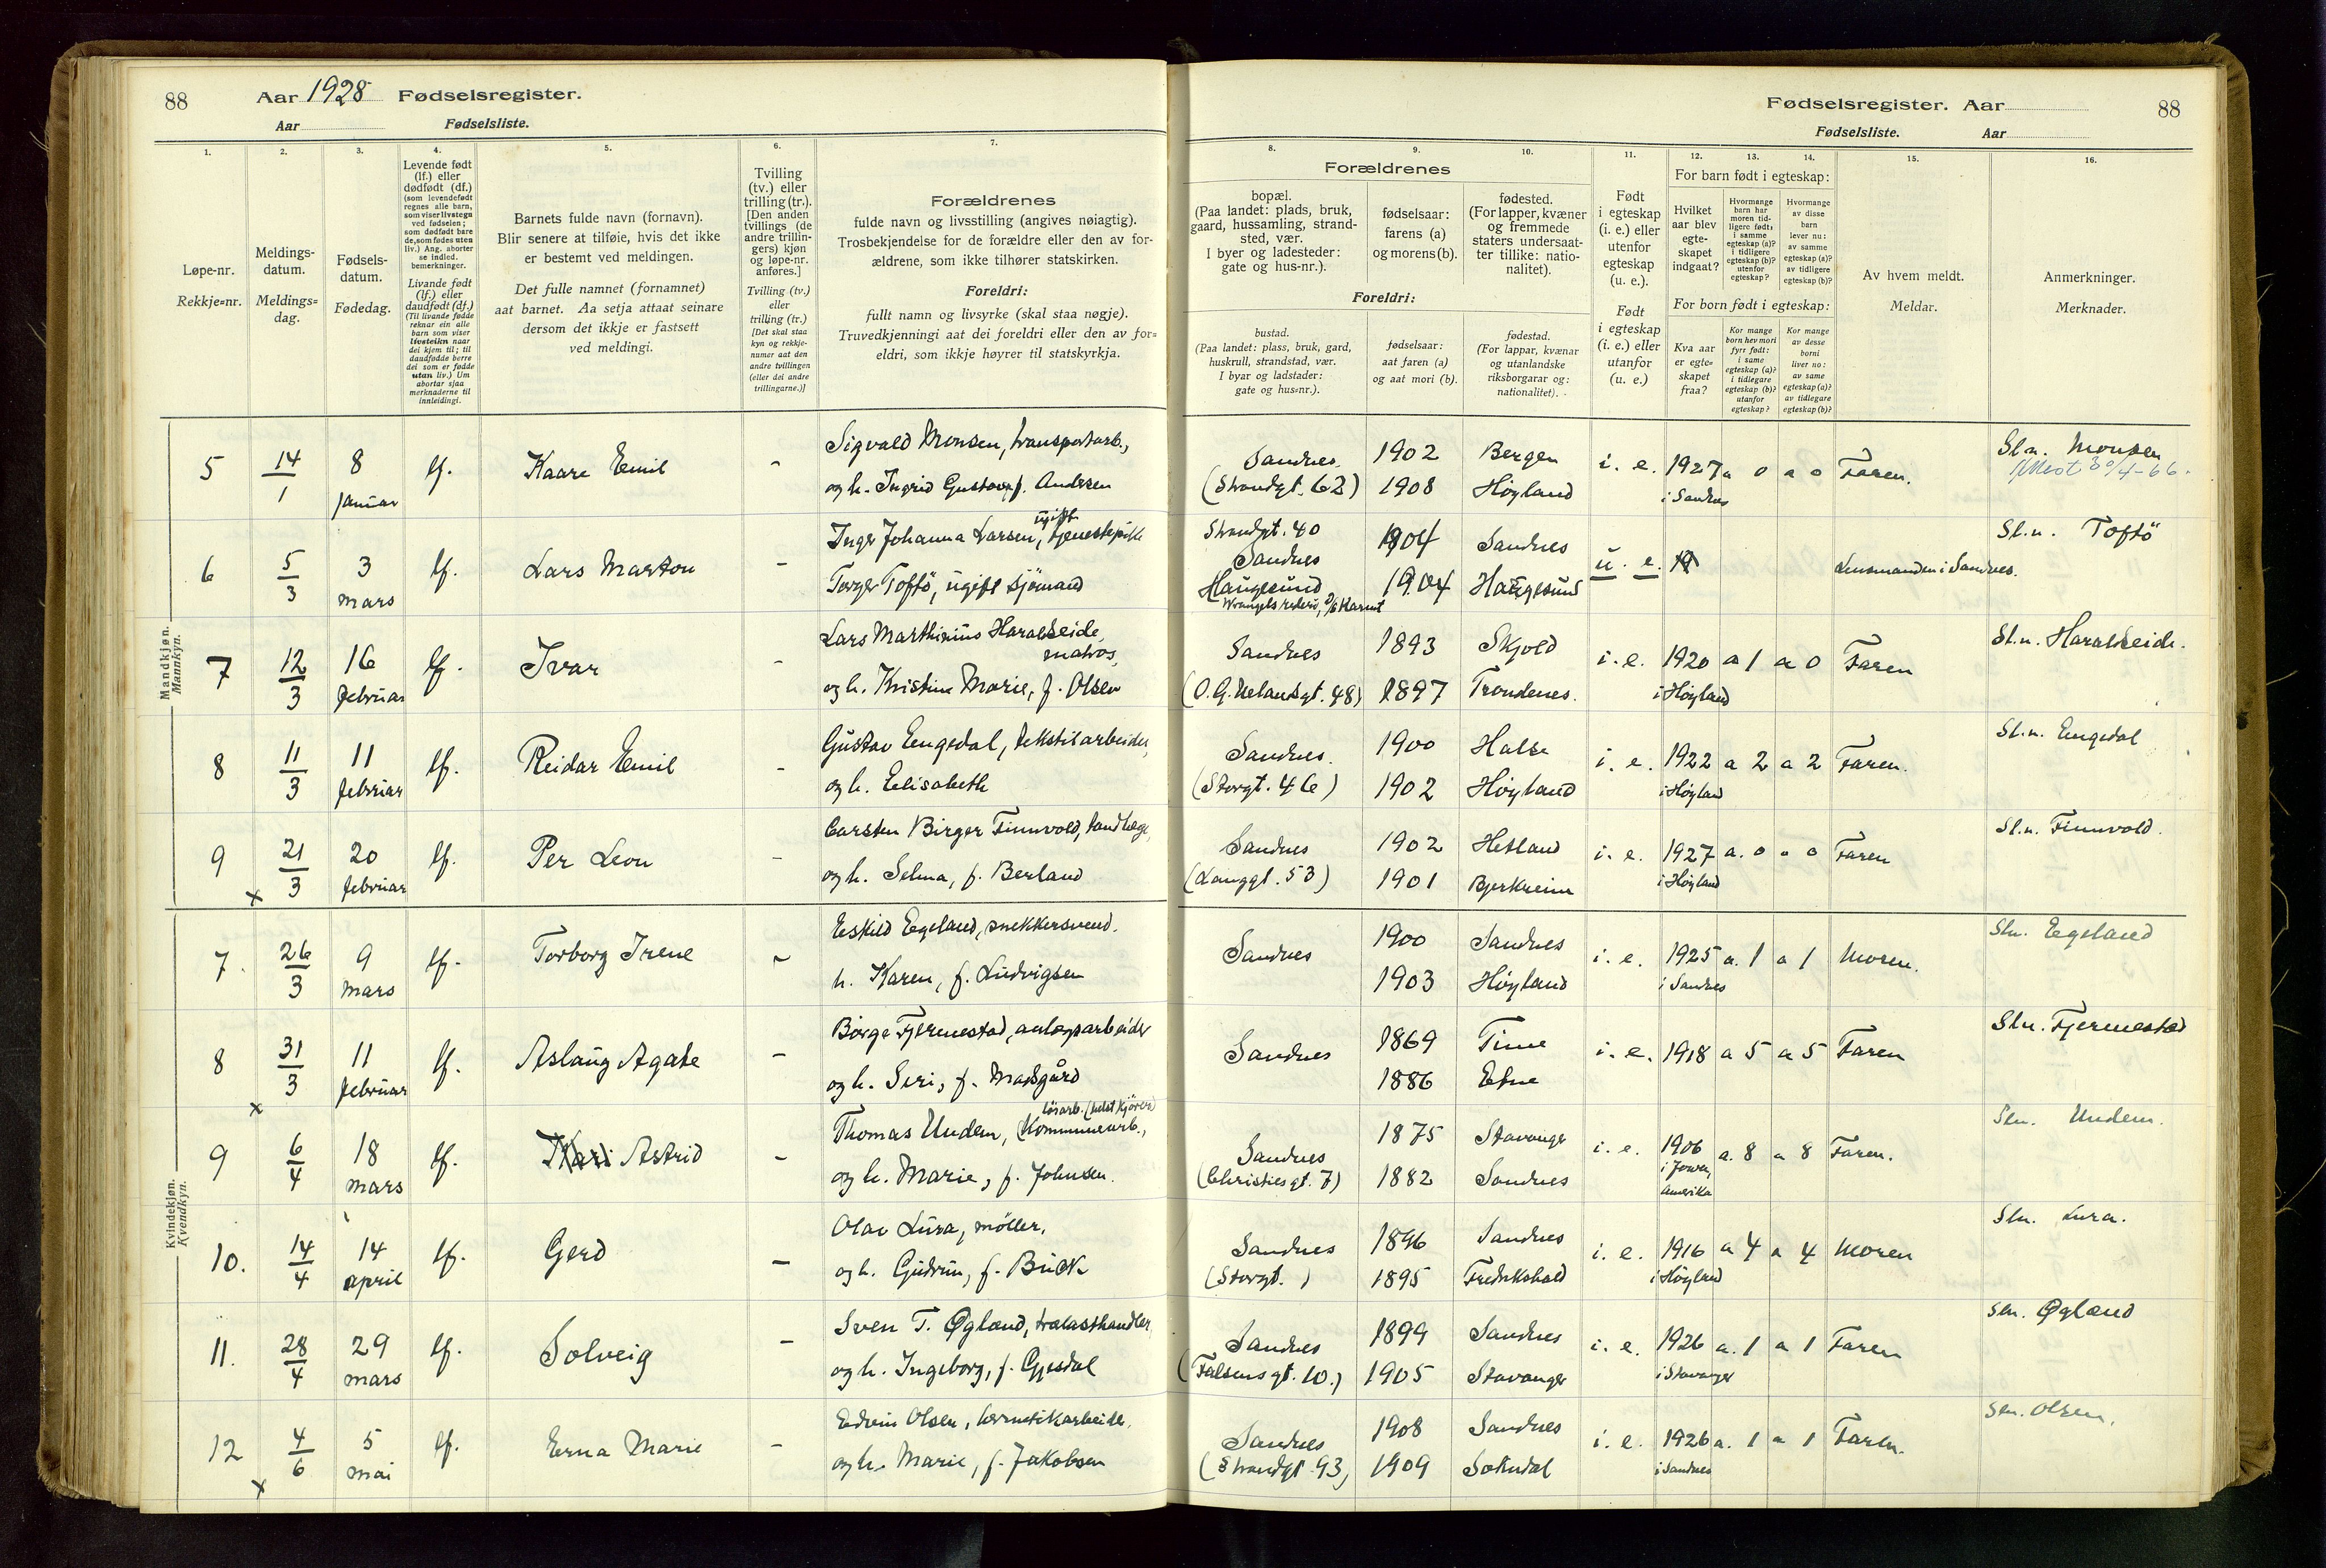 88 Aar 1928 Fødselsregister.
Aar Fødselsliste.
Fødselsregister. Aar 88
Fødselsliste. Aar
1. 2. 3. 4. 5. 6. 7. 8. 9. 10. 11. 12. 13. 14. 15. 16.
Løpe-nr.
Rekkje=nr.
Meldings-
datum.
Meldings=
dag.
Fødsels-
datum.
Fødedag.
Levende født
(lf.) eller
dødfødt (df.)
(som levendefødt
regnes alle barn,
som viser livstegn
ved fødselen;
som dødfødt bare
de, som fødes uten
liv.) Ang. aborter
se indled.
bemerkninger.
Livande født
(lf.) eller
daudfødt (df.)
(Til livande fødde
reknar ein alle
barn som viser
livsteikn naar
dei kjem til; til
daudfødde berre
dei som er fødde
utan liv.) Um
abortar sjaa
merknaderne til
innleidingi.
Barnets fulde navn (fornavn).
Blir senere at tilføie, hvis det ikke
er bestemt ved meldingen.
Det fulle namnet (fornamnet)
aat barnet. Aa setja attaat seinare
dersom det ikkje er fastsett
ved meldingi.
Tvilling
(tv.) eller
trilling (tr.).
[Den anden
tvillings (de
andre trillin-
gers) kjøn
og løpe-nr.
anføres.]
Tvilling (tv.)
eller
trilling (tr.)
[Det skal staa
kyn og rekkje-
numer aat den
andre tvillingen
(eller dei andre
trillingarne.)]
Forældrenes
fulde navn og livsstilling (angives nøiagtig).
Trosbekjendelse for de forældre eller den av for-
ældrene, som ikke tilhører statskirken.
Foreldri:
fullt namn og livsyrke (skal staa nøgje).
Truvedkjenningi aat dei foreldri eller den av for=
eldri, som ikkje høyrer til statskyrkja.
Forældrenes
bopæl.
(Paa landet: plads, bruk,
gaard, hussamling, strand-
sted, vær.
I byer og ladesteder:
gate og hus-nr.).
fødselsaar:
farens (a)
og morens (b).
fødested.
(For lapper, kvæner
og fremmede
staters undersaat-
ter tillike: natio-
nalitet).
Foreldri:
bustad.
(Paa landet: plass, bruk, gard,
huskrull, strandstad, vær.
I byar og ladstader:
gate og hus=nr.).
fødselsaar:
aat faren (a)
og aat mori (b).
fødestad.
(For lappar, kvænar
og utanlandske
riksborgarar og:
nationalitet).
Født
i egteskap
(i. e.) eller
utenfor
egteskap
(u. e.).
Født
i egteskap
(i. e.) eller
utanfor
(u. e.)
For barn født i egteskap:
Hvilket
aar blev
egte-
skapet
indgaat?
Hvormange
barn har
moren tid-
ligere født:
i samme
egteskap (a)?
i tidligere
egteskap (b)?
utenfor
egteskap?
Hvormange
av disse
barn
lever nu:
av samme
egteskap (a)?
av tidligere
egteskap (b)?
For born født i egteskap:
Kva aar
er egte=
skapet
fraa?
Kor mange
born hev mori
fyrr født:
i same
egteskap (a)?
i tidlegare
egteskap (b)?
utanfor
egteskap?
Kor mange
av desse
borni
liver no:
av same
egteskap (a)?
av tidlegare
egteskap (b)?
Av hvem meldt.
Meldar.
Anmerkninger.
Merknader.
Mandkjøn.
Mannkyn.
5 14/1 8 januar lf. Kaare Emil - Sigvald Monsen, transportarb.,
og h. Ingrid Gustava f. Andersen
Sandnes (Strandgt. 62) 1902 1908 Bergen Høyland i. e. 1927 i Sandnes a 0 a 0 Faren. Sl.n. Monsen
6 5/3 3 mars lf. Lars Marton - Inger Johanna Larsen, ugift tjenestepike
Torger Toftö, ugift sjömand
Strandgt. 40 Sandnes Haugesund 1904 1904 Sandnes Haugesund u. e. Lensmanden i Sandnes. Sl.n. Toftö
7 12/3 16 februar lf. Ivar - Lars Marthinius Haraldseide, matros,
og h. Kristine Marie, f. Olsen
Sandnes (O. G. Uelandsgt. 48) 1893 1897 Skjold Trondenes. i. e. 1920 i Høyland a 1 a 0 Faren Sl.n. Haraldseide.
8 11/3 11 februar lf. Reidar Emil - Gustav Engedal, tekstilarbeider,
og h. Elisabeth
Sandnes. (Storgt. 46) 1900 1902 Halse Høyland i. e. 1922 i Høyland a 2 a 2 Faren. Sl.n. Engedal
9 21/3 20 februar lf. Per Leon - Carsten Birger Finnvold, tandlæge,
og h. Selma, f. Berland
Sandnes (Langgt. 53) 1902 1901 Hetland Bjerkreim i. e. 1927 i Høyland a. 0 a 0 Faren Sl.n. Finnvold.
x
Kvindekjøn.
Kvendkyn.
7. 26/3 9 mars lf. Torborg Irene - Eskild Egeland, snekkersvend.
h. Karen, f. Ludvigsen
Sandnes 1900 1903 Sandnes Høyland i. e. 1925 i Sandnes a. 1 a 1 Moren. Sln. Egeland
8 31/3 11 februar lf. Aslaug Agate - Börge Fjermestad, anlegsarbeider
og h. Siri, f. Madsgård
Sandnes 1869 1886 Time Etne i. e. 1918 a 5 a 5 Faren Sln. Fjermestad
x
9 6/4 18 mars lf. Kari Astrid - Thomas Undem, Kommunearb., lösarb. (helst kjörer)
og h. Marie, f. Johnsen.
Sandnes (Christiesgt. 7) 1875 1882 Stavanger Sandnes i. e. 1906 Amerika a. 8 a 8 Faren. Sln. Undem.
10. 14/4 14 april lf. Gerd - Olav Lura, möller,
og h. Gudrun, f. Buck
Sandnes (Storgt. ) 1896 1895 Sandnes Fredrikshald i. e. 1916 i Höyland a 4 a 4 Moren Sln. Lura.
11. 28/4 29 mars lf. Solveig - Sven T. Øgland, trælasthandler,
og h. Ingeborg, f. Gjesdal
Sandnes (Falsensgt. 10.) 1899 1905 Sandnes Stavanger i. e. 1926 i Stavanger a. 1 a 1 Faren sln. Øgland
12 4/6 5 mai lf. Erna Marie - Edvin Olsen, hermetikarbeider.
og h. Marie, f. Jakobsen
Sandnes (Strandgt. 93) 1908 1909 Sandnes Sokndal i. e. 1926 i Sandnes a. 1 a 1 Faren. Sln. Olsen.
x